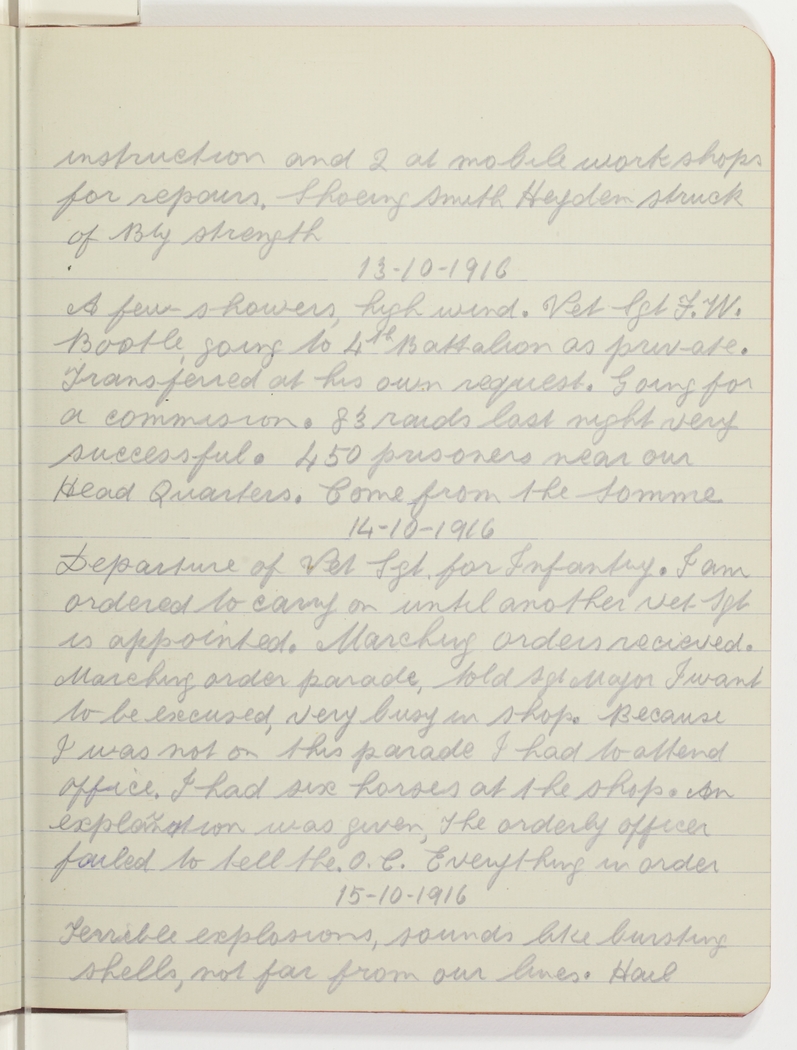 instruction and 2 at mobile work shops
for repairs. Shoeing Smith Heyden struck
of Bty strength
13-10-1916
A few showers, high wind. Vet Sgt F.W.
Bootle, going to 4th Battalion as private.
Transferred at his own request. Going for
a commision. 83 raids last night very
successful. 450 prisoners near our
Head Quarters. Come from the Somme
14-10-1916
Departure of Vet Sgt. for Infantry. I am
ordered to carry on until another vet Sgt
is appointed. Marching orders recieved.
Marching order parade, told Sgt Major I want
to be excused, very busy in shop. Because
I was not on this parade I had to attend
office. I had six horses at the shop. An
explanation was given, the orderly officer
failed to tell the O.C. Everything in order
15-10-1916
Terrible explosions, sounds like bursting
shells, not far from our lines. Hail